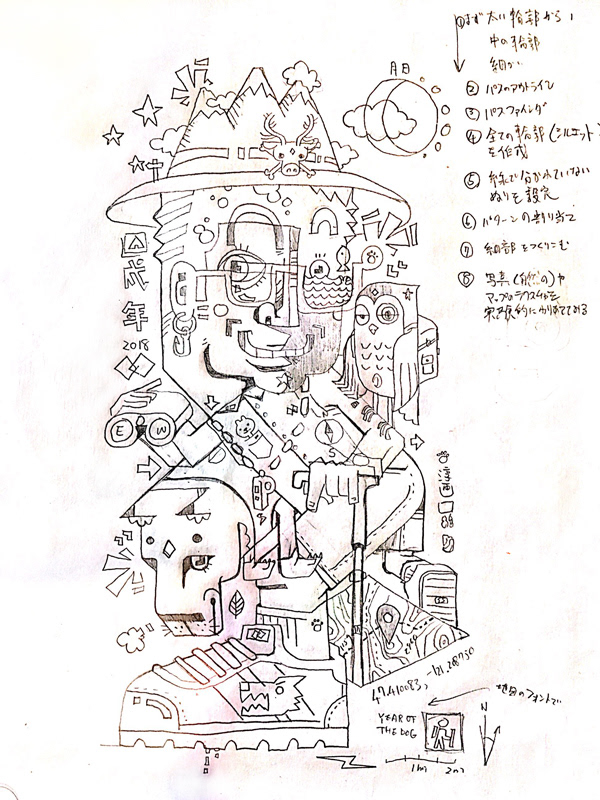 ① まず太い輪郭から
中の輪郭
細かい
② パスのアウトライン
③ パスファインダ
④ 全ての輪郭(シルエット)
を作成
⑤ 線で分かれていない
ぬりを設定
⑥ パターンの割り当て
⑦ 細部をつくりこむ
⑧ 写真(自然の)や
月日
戌年
2018
E
W
S
47.410083, -121.28750
地図のフォントで
YEAR OF
THE DOG
N
1m
2m